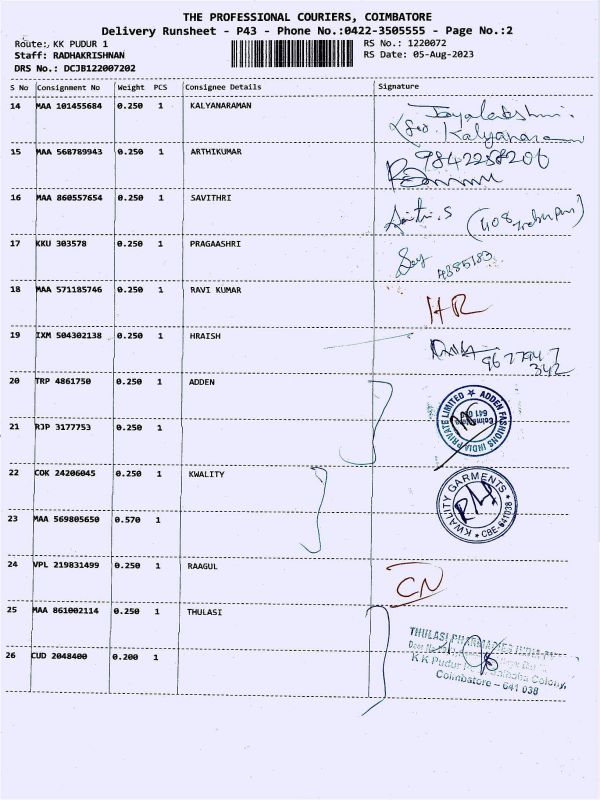 THE PROFESSIONAL COURIERS, COIMBATORE
Delivery Runsheet - P43 - Phone No.:0422-3505555 - Page No.:2
Route:, KK PUDUR 1 RS No.: 1220072
Staff: RADHAKRISHNAN RS Date: 05-Aug-2023
DRS No.: DCJB122007202
S No Consignment No Weight PCS Consignee Details Signature
14 MAA 101455684 0.250 1 KALYANARAMAN Jayalakshmi.
Kalyanaraman
15 MAA 568789943 0.250 1 ARTHIKUMAR 9842258206
16 MAA 860557654 0.250 1 SAVITHRI
17 KKU 303578 0.250 1 PRAGAASHRI
4885183
18 MAA 571185746 0.250 1 RAVI KUMAR HR
19 IXM 504302138 0.250 1 HRAISH
9677947
342
20 TRP 4861750 0.250 1 ADDEN ADDEN FASHIONS INDIA PRIVATE LIMITED
Coimbatore
21 RJP 3177753 0.250 1
22 COK 24206045 0.250 1 KWALITY KWALITY GARMENTS
CBE-641038
23 MAA 569805650 0.570 1
24 VPL 219831499 0.250 1 RAAGUL CN
25 MAA 861002114 0.250 1 THULASI THULASI PHARMACIES INDIA
26 CUD 2048400 0.200 1 K K Pudur Colony,
Coimbatore - 641 038